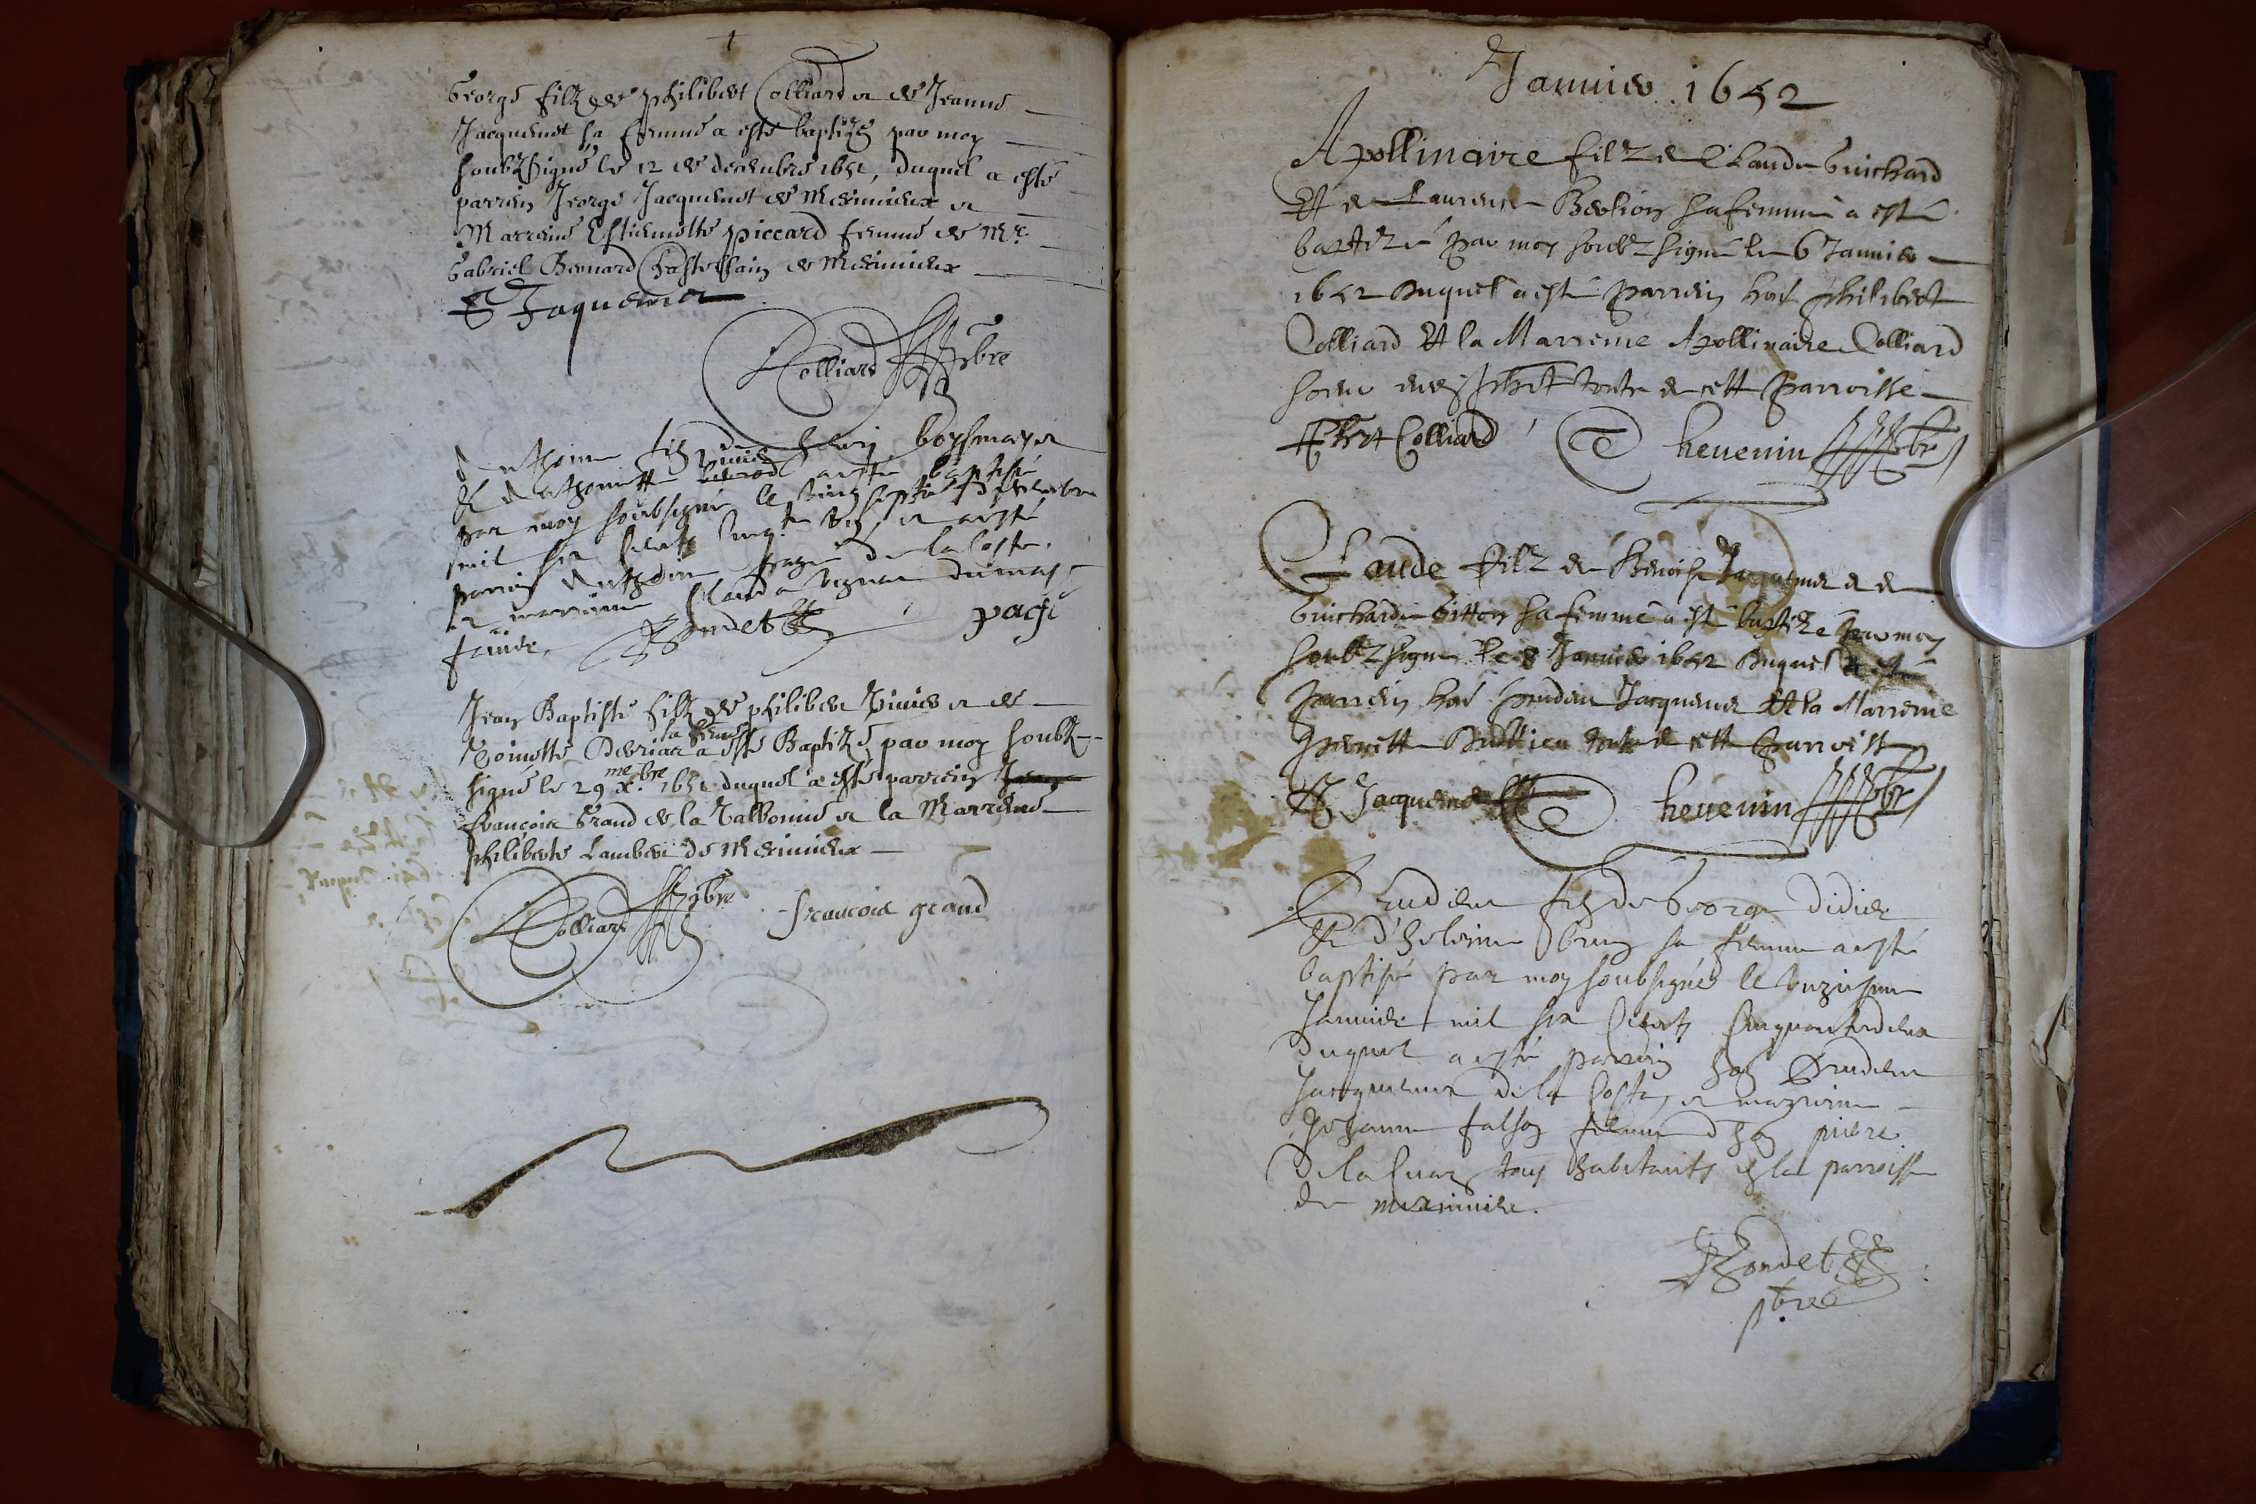 George filz de philibert Colliard et de Jeanne
Jacquemet sa femme a esté baptizé par moy
soubzsigné le 12 de decembre 1651, duquel a esté
parrein George Jacquemet de Meximieux et
Marreine Estiennette piccard femme de Mr.
Gabriel Bernard Chastellain de Meximieux
G Jaquemet
Colliard pbre
Anthoine filz
par moy soubsigné le vingt septie decembre
mil six cents cinqte un, et a esté
parrein Anthoine pagi de la Coste
et marreine Clauda dumas
Rondet pagi
Jean Baptiste filz de philibert Vinier et de
Toinette Derriat sa femme a esté Baptizé par moy soubz
signé le 29 xmebre 1651 duquel a esté parrein
françois Grand de la Valbonne et la Marreine
philiberte Lambert de Meximieux
Colliard pbre francois grand
Januier 1652
Apollinaire filz de Claude Guichard
Et de Laurence sa femme a esté
baptizé par moy soubzsigné le 6 Januier
1652 Duquel a esté parrein hon philibert
Colliard Et la Marreine Apollinaire Colliard
soeur dudit phibt touts de cette parroisse
Phbert Colliard Theuenin pbr
Claude filz de Benoist Jacquemet et de
Guicharde Gitton sa femme a esté baptizé par moy
soubzsigné le 8 Januier 1652 Duquel a esté
parrein hon prudent Jacquemet Et la Marreine
pernette touts de cette parroisse
P Jacquemet Theuenin pbr
Prudent filz de George Didier
Et d'heleine brun sa femme a esté
baptisé par moy soubsigné le unziesme
Januier mil six cents cinquante deux
duquel a esté parrein hon Prudent
Jacquemet de la Coste, et marreine
Jehanne falson femme d'hon pierre
de la tous habitants de la parroisse
de meximieu.
Rondet
pbre